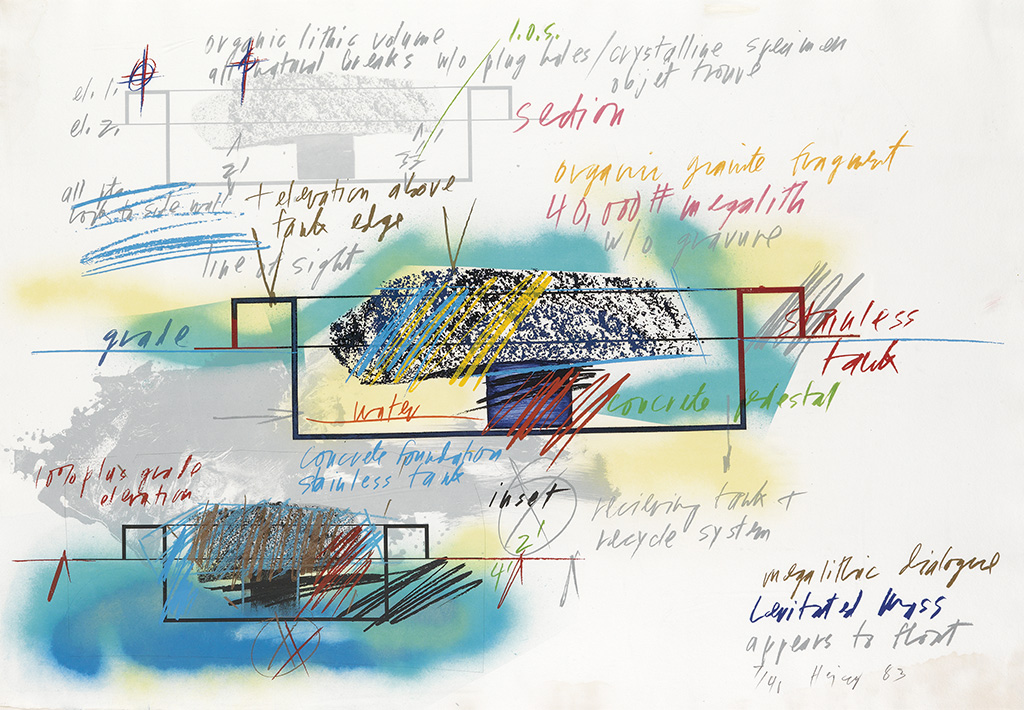 organic lithic volume
all natural breaks w/o plug holes/crystalline specimen
objet trouve
l.o.s.
el. 1.
el. 2.
section
2'
3'
all pts.
+ elevation above
tank edge
line of sight
organic granite fragment
40,000# megalith
w/o gravure
grade
stainless
tank
water
concrete pedestal
concrete foundation
stainless tank
100% plus grade
elevation
inset
2'
4'
recieving tank +
recycle system
megalithic dialogue
Levitated Mass
appears to float
Heizer 83